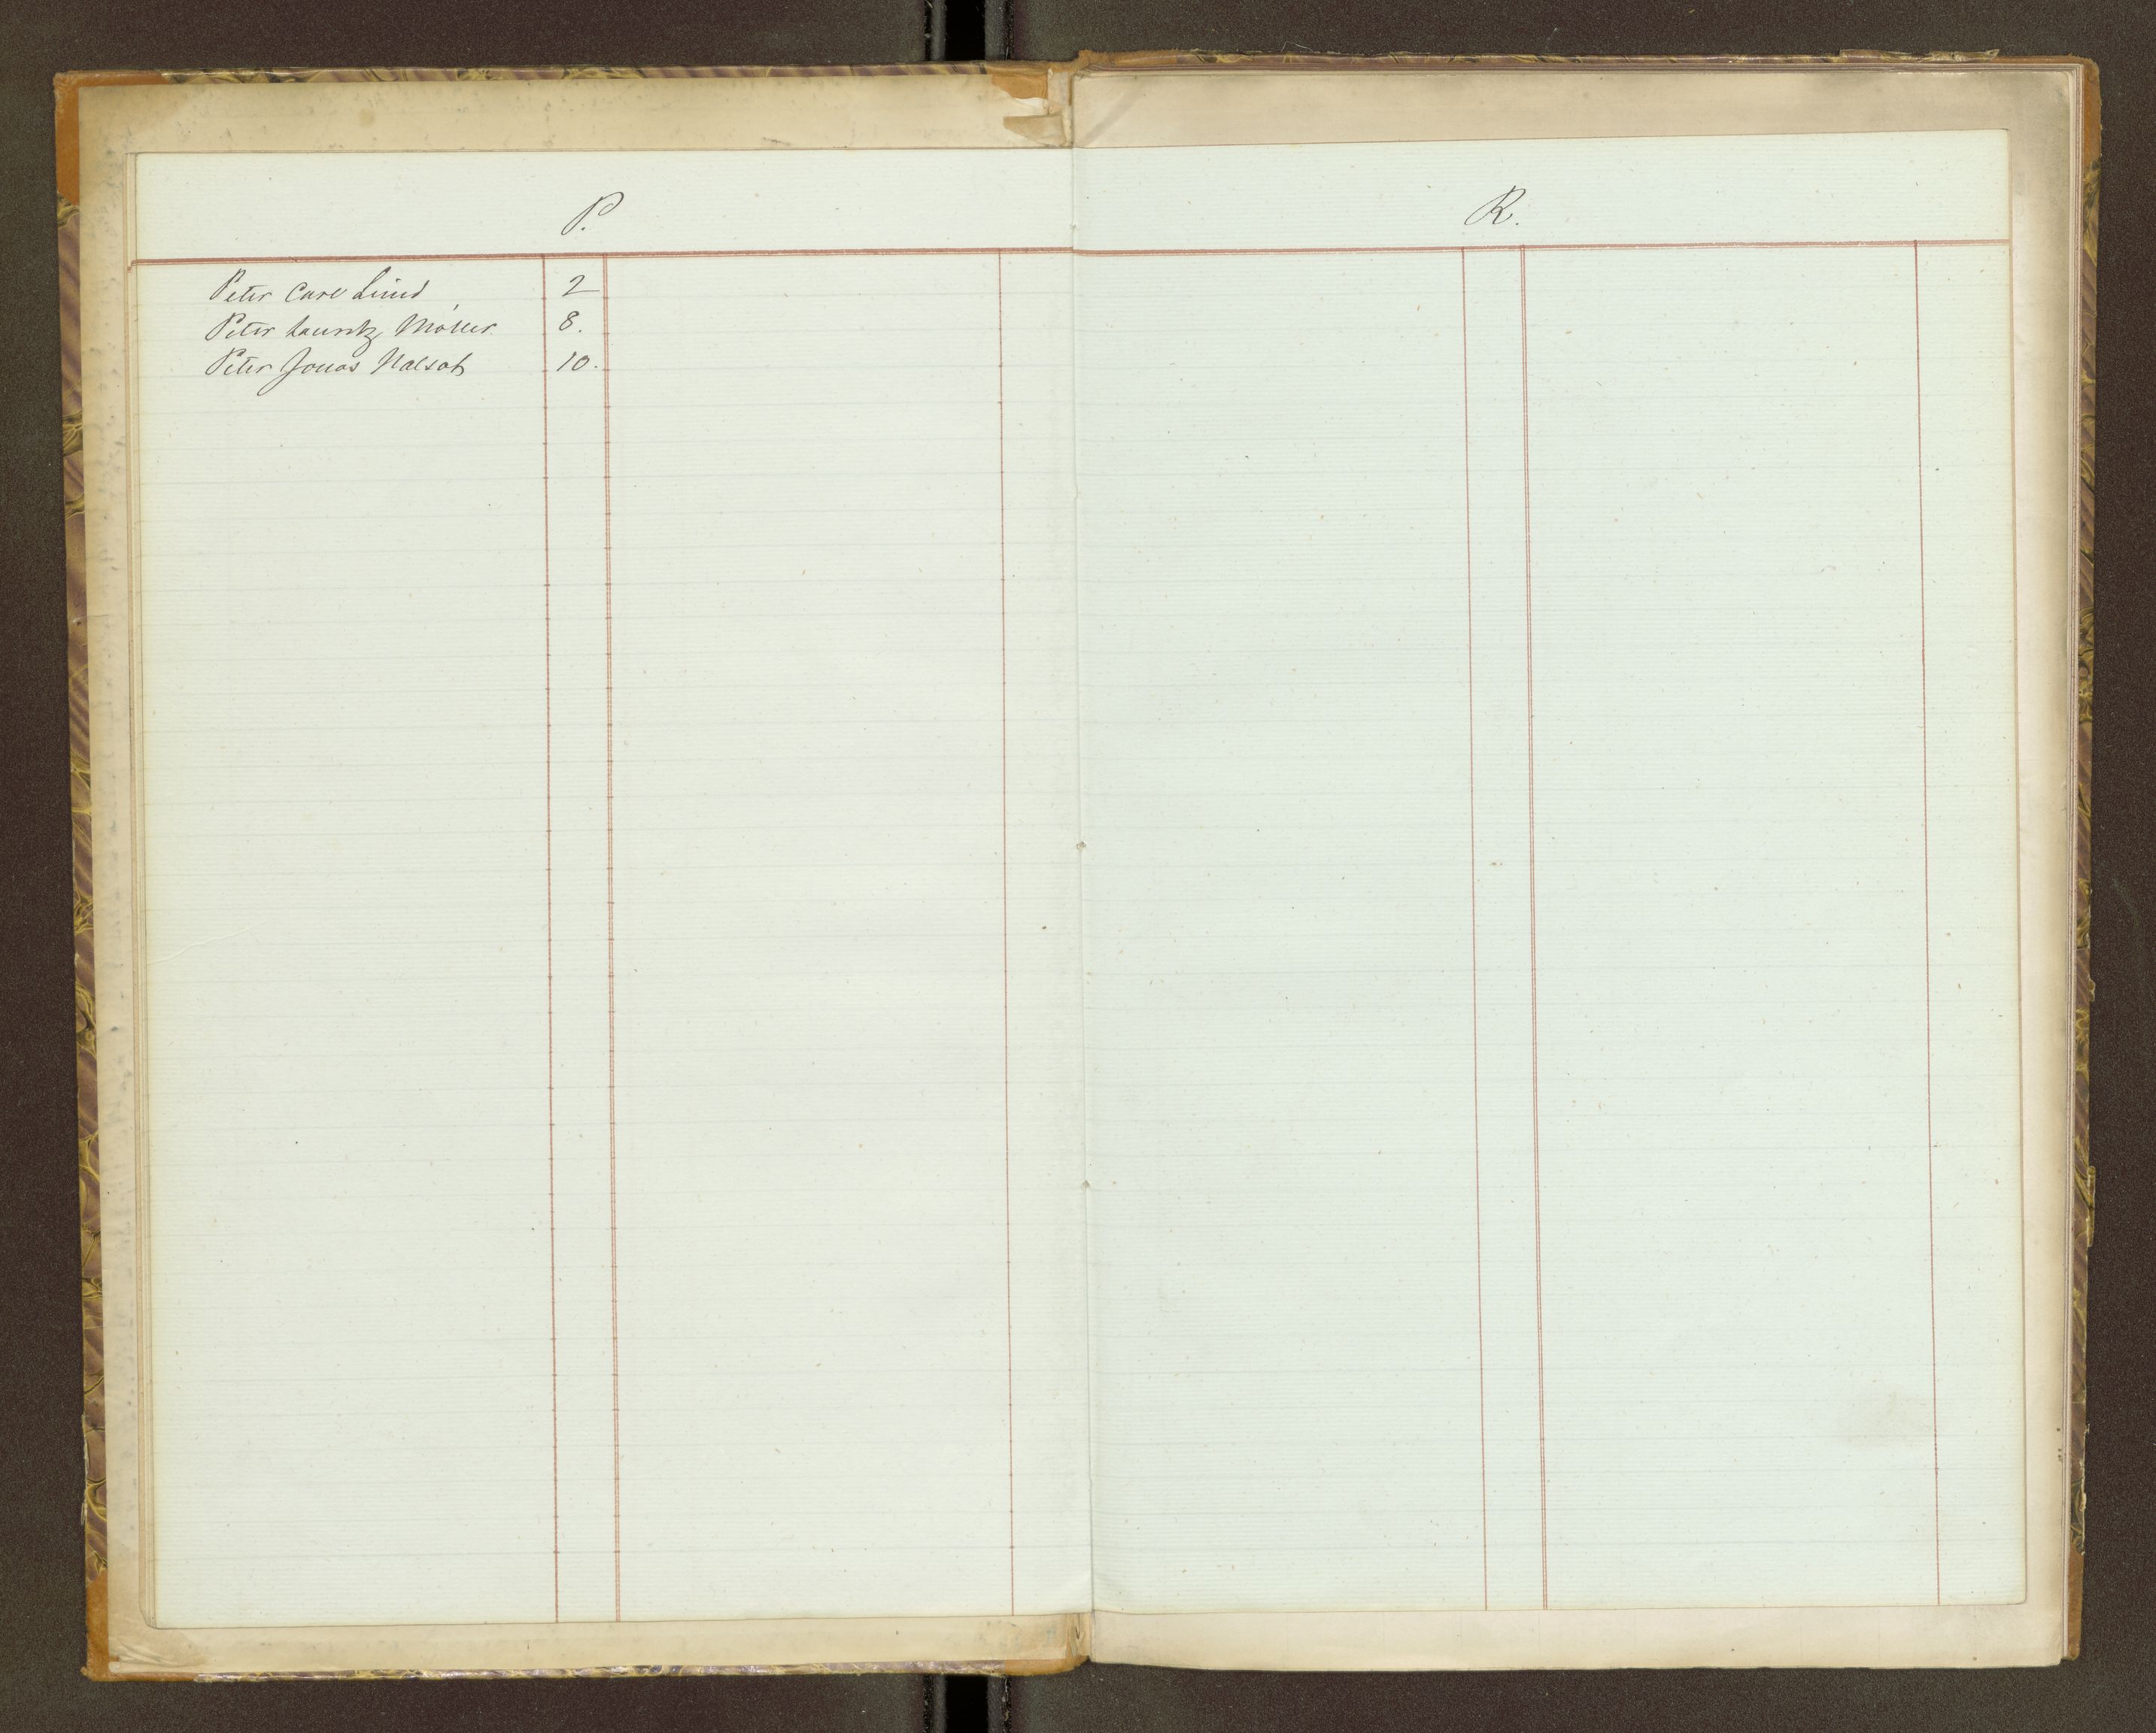 P.
Peter Carl Lund 2
Peter Lauritz Möller. 8.
Peter Jonas 10.
R.